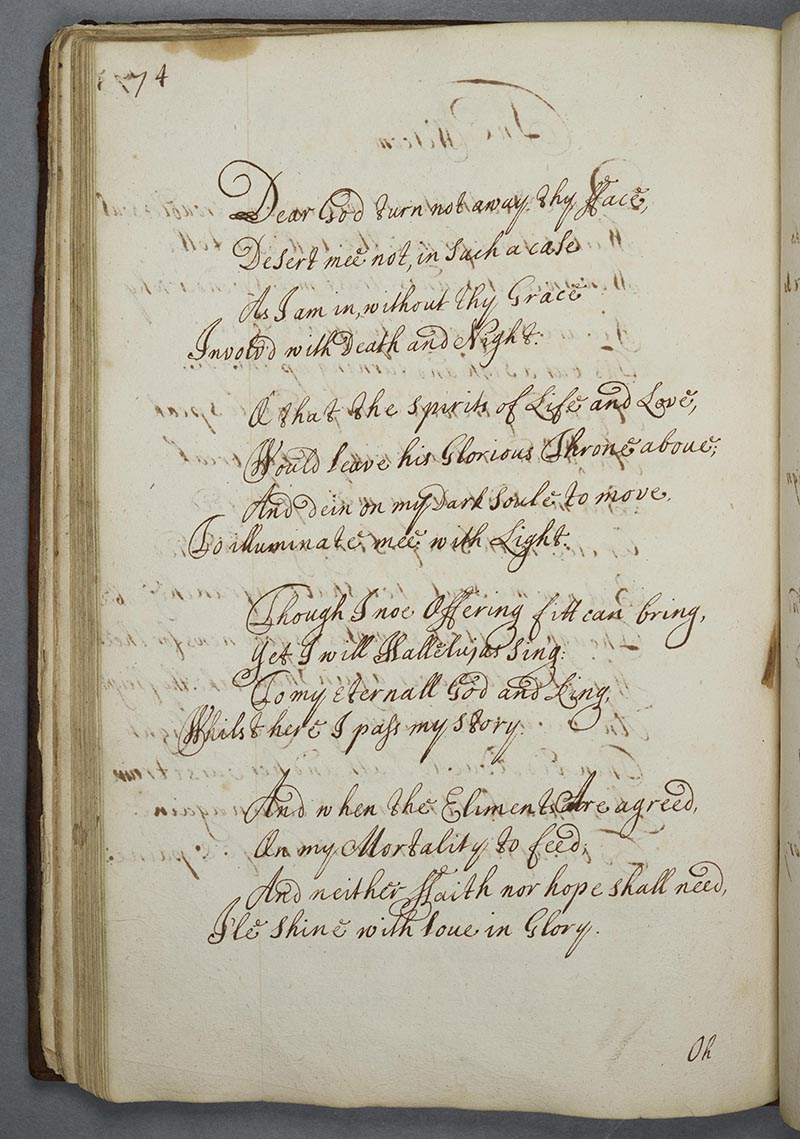 74
Dear God turn not away thy fface,
Desert mee not, in such a case
As I am in, without thy Grace
Involv'd with Death and Night.
O that the spirits of Life and Love,
Would leave his Glorious Throne aboue;
And dein on my Dark Soule to move,
To illuminate mee with Light.
Though I noe Offering fitt can bring,
Yet I will Hallelujas sing:
To my eternall God and King,
Whilst here I pass my story.
And when the Eliments Are agreed,
On my Mortality to feed;
And neither ffaith nor hope shall need,
I'le shine with loue in Glory.
Oh